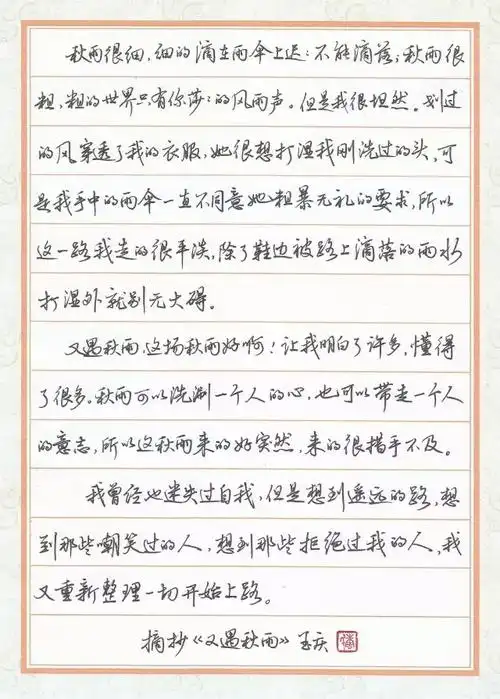 秋雨很细,细的滴在雨伞上迟迟不能滴落;秋雨很
粗,粗的世界只有你莎莎的风雨声。但是我很坦然。划过
的风穿透了我的衣服,她很想打湿我刚洗过的头,可
是我手中的雨伞一直不同意她粗暴无礼的要求,所以
这一路我走的很平淡,除了鞋边被路上滴落的雨水
打湿外就别无大碍。
又遇秋雨,这场秋雨好啊!让我明白了许多,懂得
了很多。秋雨可以洗涮一个人的心,也可以带走一个人
的意志,所以这秋雨来的好突然,来的很措手不及。
我曾经也迷失过自我,但是想到遥远的路,想
到那些嘲笑过的人,想到那些拒绝过我的人,我
又重新整理一切开始上路。
摘抄《又遇秋雨》